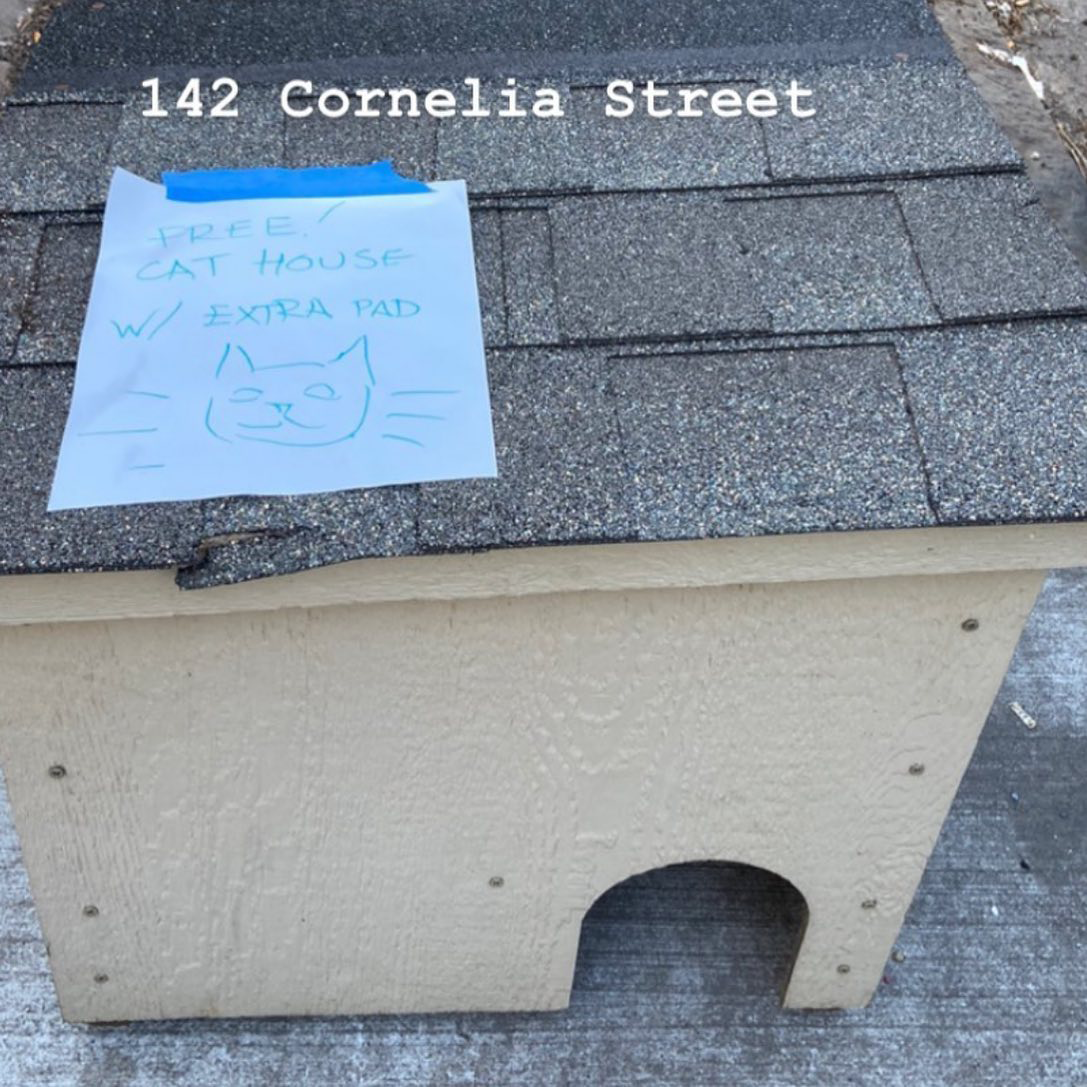 142 Cornelia Street
FREE!
CAT HOUSE
W/ EXTRA PAD